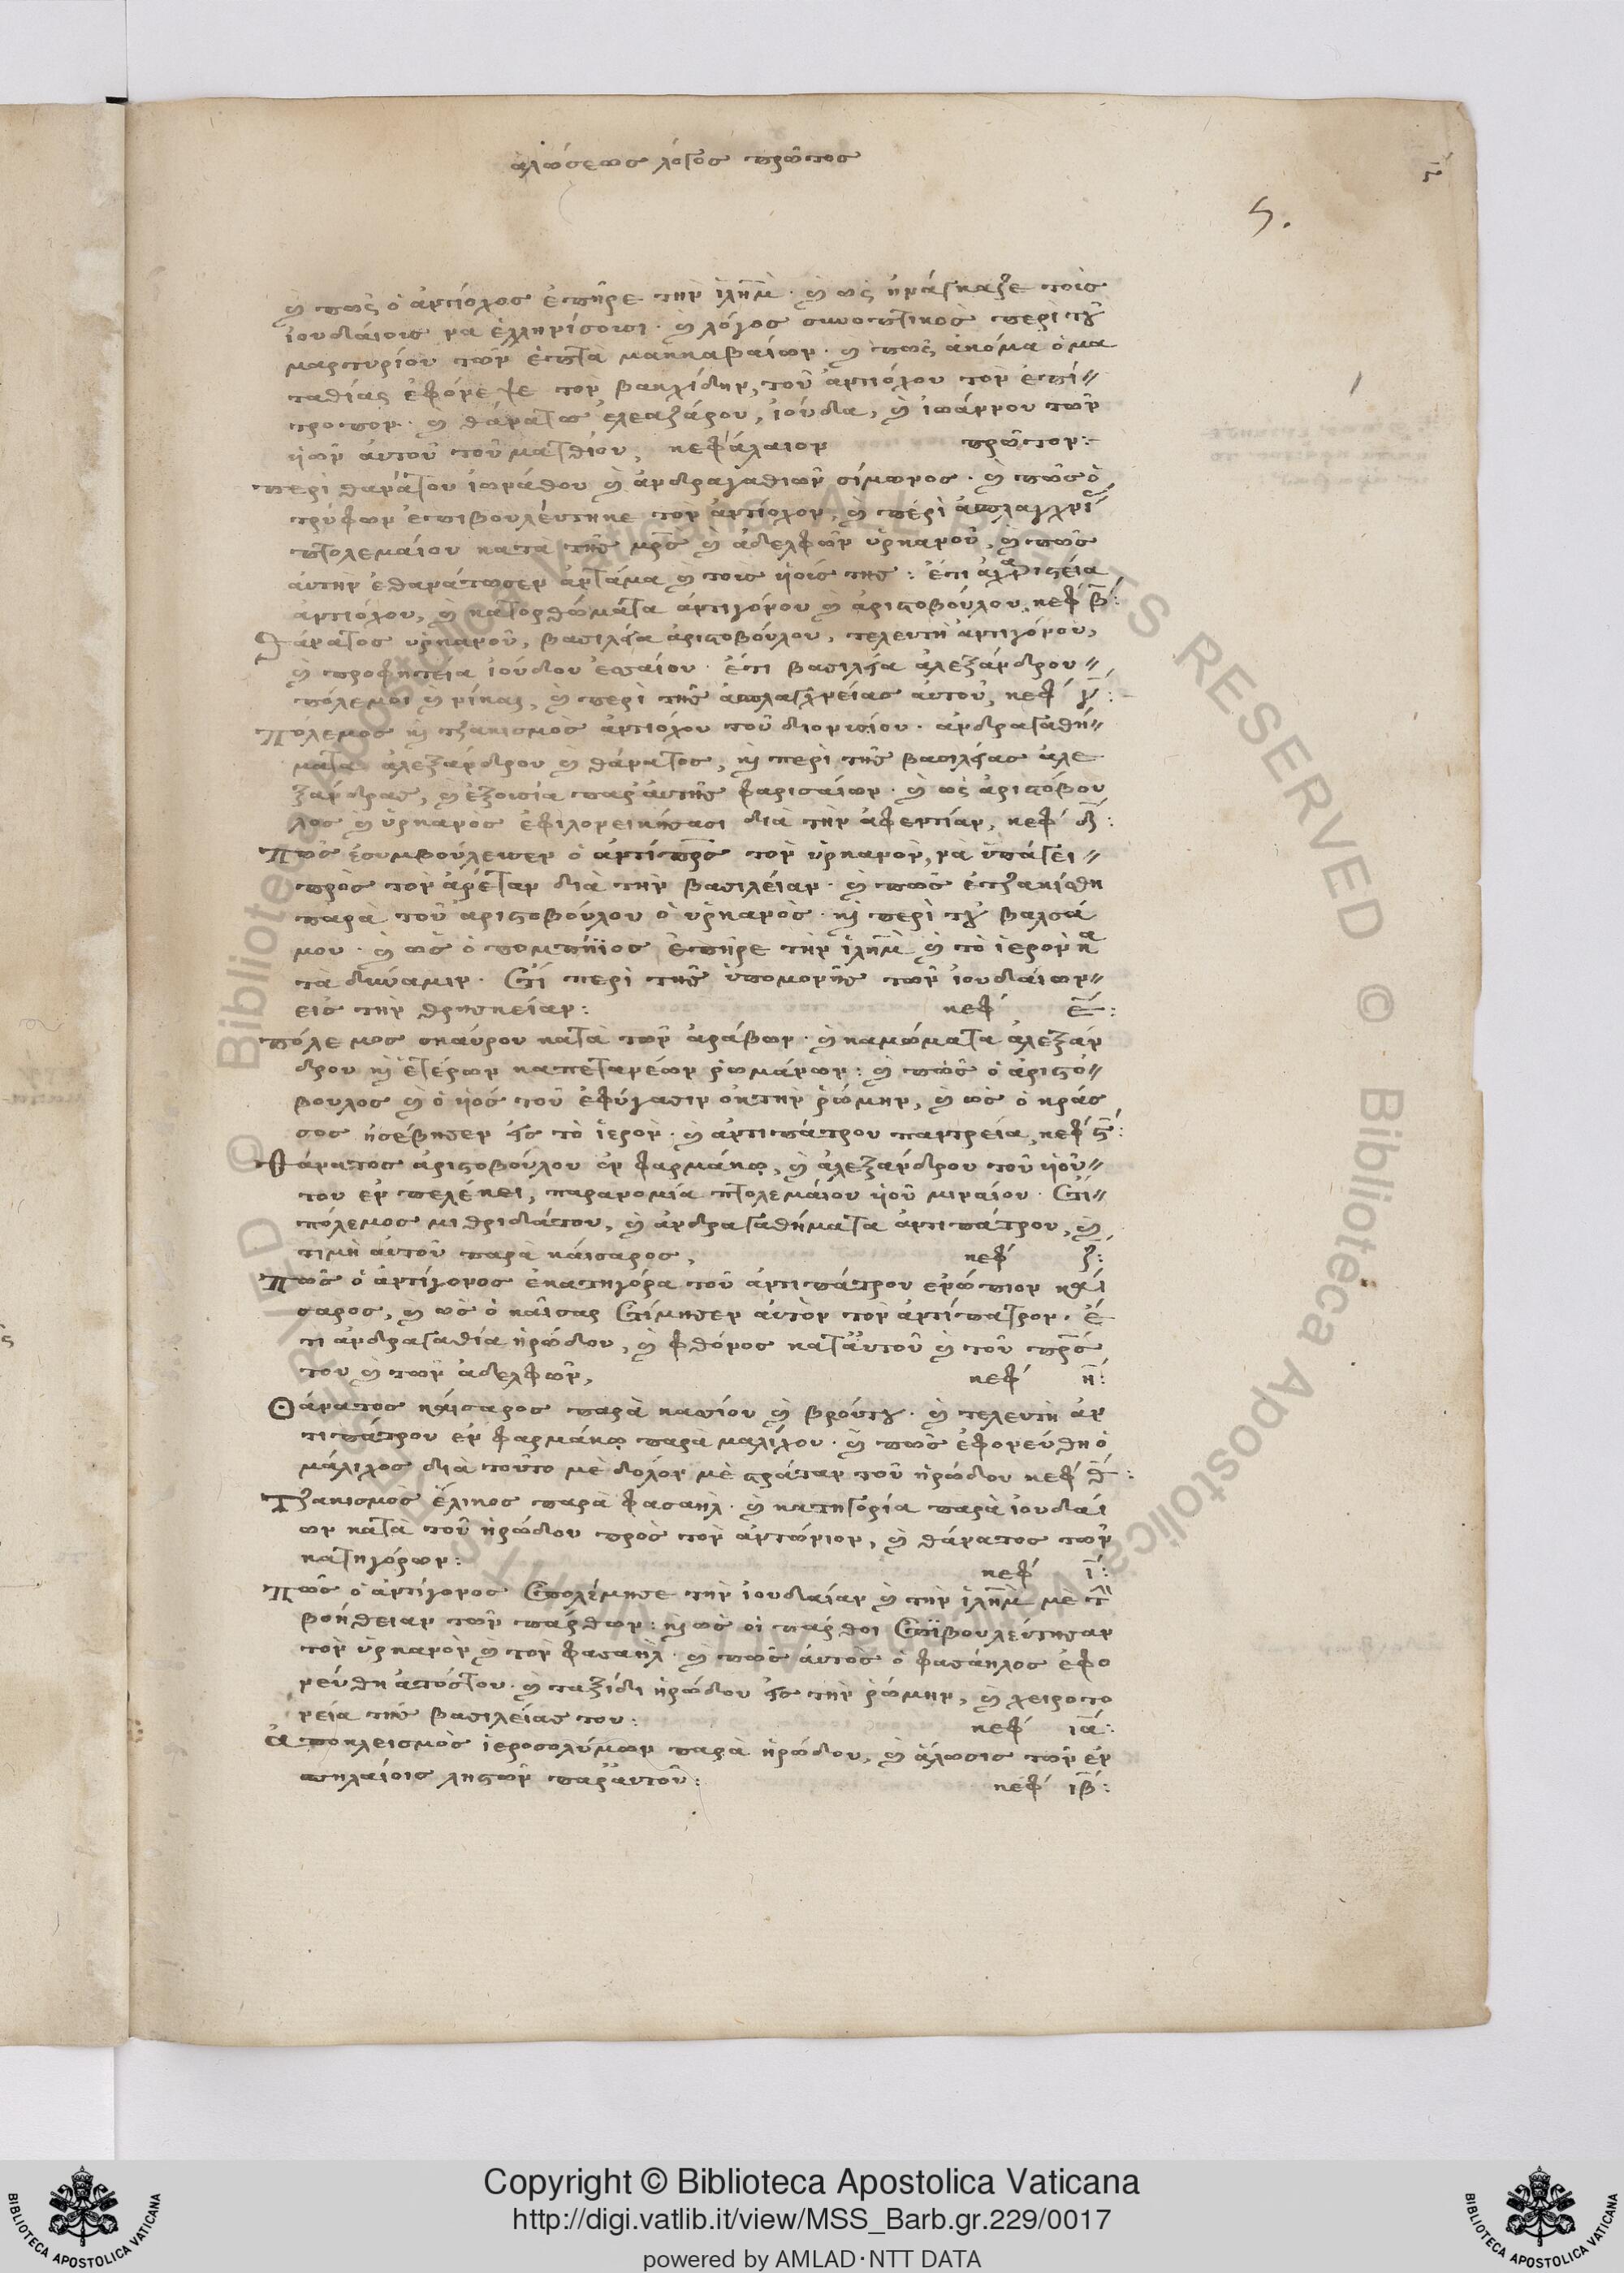 ἁλώσεως λόγος πρῶτος
ϛ
5.
καὶ πῶς ὁ ἀντίοχος ἐπῆρε τὴν ἱλῆμ· καὶ ὡς ἠνάγκαζε τοὶς
ἰουδαίοις να ἑλληνίσουσι· καὶ λόγος συνοπτικὸς περὶ τοῦ
μαρτυρίου τῶν ἑπτὰ μακκαβαίων· καὶ πῶς ἀκόμα ὁ μα
ταθίας ἐφόνεψε τὸν βακχίδην, τοῦ ἀντιόχου τὸν ἐπί
τροπον· καὶ θάνατος ἐλεαζάρου, ἰούδα, καὶ ἰωάννου τῶν
ἡῶν ἀυτοῦ τοῦ ματθίου, κεφάλαιον πρῶτον:
περὶ θανάτου ἰωνάθου καὶ ἀνδραγαθιῶν σίμωνος· καὶ πῶς ὁ
τρύφων ἐπιβουλέυτηκε τὸν ἀντίοχον, καὶ περὶ
πτολεμαίου κατὰ τῆς μρς καὶ ἀδελφῶν ὑρκανοῦ, καὶ πῶς
ἀυτὴν ἐθανάτωσεν ἀντάμα καὶ τοις ἡοίς της: ἔτι
ἀντιόχου, καὶ κατορθώματα ἀντιγόνου καὶ ἀριστοβούλου, κεφ β:
Θάνατος ὑρκανοῦ, βασιλεία ἀριστοβούλου, τελευτὴ ἀντιγόνου,
καὶ προφητεία ἰούδου ἐσαίου· ἔτι βασιλεία ἀλεξάνδρου
πόλεμοι καὶ νίκαι, καὶ περὶ τῆς ἀπλαγχνείας ἀυτοῦ, κεφ γ:
Πόλεμος καὶ τζακισμὸς ἀντιόχου τοῦ διονυσίου· ἀνδραγαθή
ματα ἀλεξάνδρου καὶ θάνατος, καὶ περὶ τῆς βασιλείας ἀλε
ξάνδρας, καὶ ἐξουσία παρ' ἀυτῆς φαρισαίων· καὶ ὡς ἀριστόβου
λος καὶ ὑρκανος ἐφιλονεικήσασι διὰ τὴν ἀφεντίαν, κεφ δ:
Πῶς ἐσυμβούλεψεν ὁ ἀντίπρς τὸν ὑρκανὸν, να ὑπάγει
πρὸς τὸν ἀρέταν διὰ τὴν βασιλείαν· καὶ πῶς ἐτζακίσθη
παρὰ τοῦ ἀριστοβούλου ὁ ὑρκανὸς· καὶ περὶ τοῦ βαλσά
μου· καὶ ὡς ὁ πομπήϊος ἐπῆρε τὴν ἱλῆμ καὶ τὸ ἱερὸν κα
τὰ δύναμιν· Ἔτι περὶ τῆς ὑπομονῆς τῶν ἰουδαίων
εἰς τὴν θρησκείαν: κεφ ε:
πόλεμος σκάυρου κατὰ τῶν ἀράβων· καὶ καμώματα ἀλεξάν
δρου καὶ ἑτέρων καπετανέων ῥωμάνων: καὶ πῶς ὁ ἀριστό
βουλος καὶ ὁ ἡός του ἐφύγασιν ἐκ τὴν ῥώμην, καὶ ὡς ὁ κράσ
σος ἠσέβησεν εἰς τὸ ἱερον· καὶ ἀντιπάτρου παντρεία, κεφ ϛ:
Θάνατος ἀριστοβούλου ἐν φαρμάκῳ, καὶ ἀλεξάνδρου τοῦ ἡοῦ
του ἐν πελέκει, παρανομία πτολεμάιου ἡοῦ μιναίου· Ἔτι
πόλεμος μιθριδάτου, καὶ ἀνδραγαθήματα ἀντιπάτρου, καὶ
τιμὴ ἀυτοῦ παρὰ κάισαρος, κεφ ζ:
Πῶς ὁ ἀντίγονος ἐκατηγόρα τοῦ ἀντιπάτρου ἐνώπιον καί
σαρος, καὶ ὡς ὁ κάισαρ ἐτίμησεν ἀυτὸν τὸν ἀντίπατρον· ἔ
τι ἀνδραγαθία ἡρώδου, καὶ φθόνος κατ' ἀυτοῦ καὶ τοῦ πρς
του καὶ τῶν ἀδελφῶν, κεφ η:
Θάνατος κάισαρος παρὰ κασίου καὶ βρούτου· καὶ τελευτὴ ἀν
τιπάτρου ἐν φαρμάκῳ παρὰ μαλίχου· καὶ πῶς ἐφονεύθη ὁ
μάλιχος διὰ τοῦτο μὲ δολόν μὲ στράταν τοῦ ἡρώδου κεφ θ:
Τζακισμὸς ἕλικος παρὰ φασαὴλ· καὶ κατηγορία παρὰ ἰουδαί
ων κατὰ τοῦ ἡρώδου πρὸς τὸν ἀντώνιον, καὶ θάνατος τῶν
κατηγόρων: κεφ ι:
Πῶς ὁ ἀντίγονος ἐπολέμησε τὴν ἰουδαίαν καὶ τὴν ἱλῆμ μὲ τὴν
βοήθειαν τῶν πάρθων: καὶ ὡς οἱ πάρθοι ἐπϊβουλεύτησαν
τὸν ὑρκανὸν καὶ τὸν φασαὴλ· καὶ πῶς ἀυτὸς ὁ φασάηλος ἐφο
νεύθη ἀπόστου· καὶ ταξίδι ἡρώδου εἰς τὴν ῥώμην, καὶ χειροτο
νεία τῆς βασιλείας του: κεφ ια:
Ἀποκλεισμὸς ἱεροσολύμων παρὰ ἡρώδου, καὶ ἅλωσις τῶν ἐν
σπηλαίοις ληστῶν παρ' ἀυτοῦ: κεφ ιβ:
Copyright © Biblioteca Apostolica Vaticana
http://digi.vatlib.it/view/MSS_Barb.gr.229/0017
powered by AMLAD·NTT DATA
BIBLIOTECA APOSTOLICA VATICANA
BIBLIOTECA APOSTOLICA VATICANA